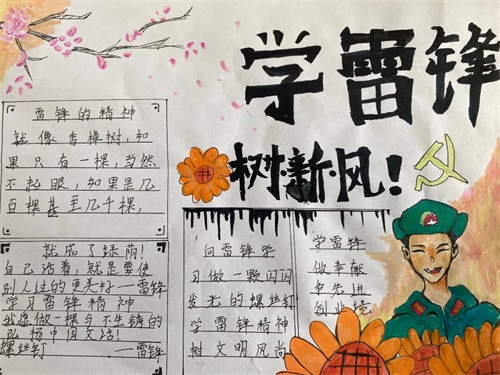 学雷锋
树新风!
雷锋的精神
就像香樟树,如
果只有一棵,当然
不起眼,如果是几
百棵甚至几千棵,
就成了绿荫!
自己活着,就是要使
别人过的更美好—雷锋
学习雷锋精神
我愿做一棵永不生锈的
弘扬中国文话!
螺丝钉 —雷锋
向雷锋学
习做一颗闪闪
发光的螺丝钉
学雷锋精神
树文明风尚
学雷锋
做奉献
争先进
创业绩